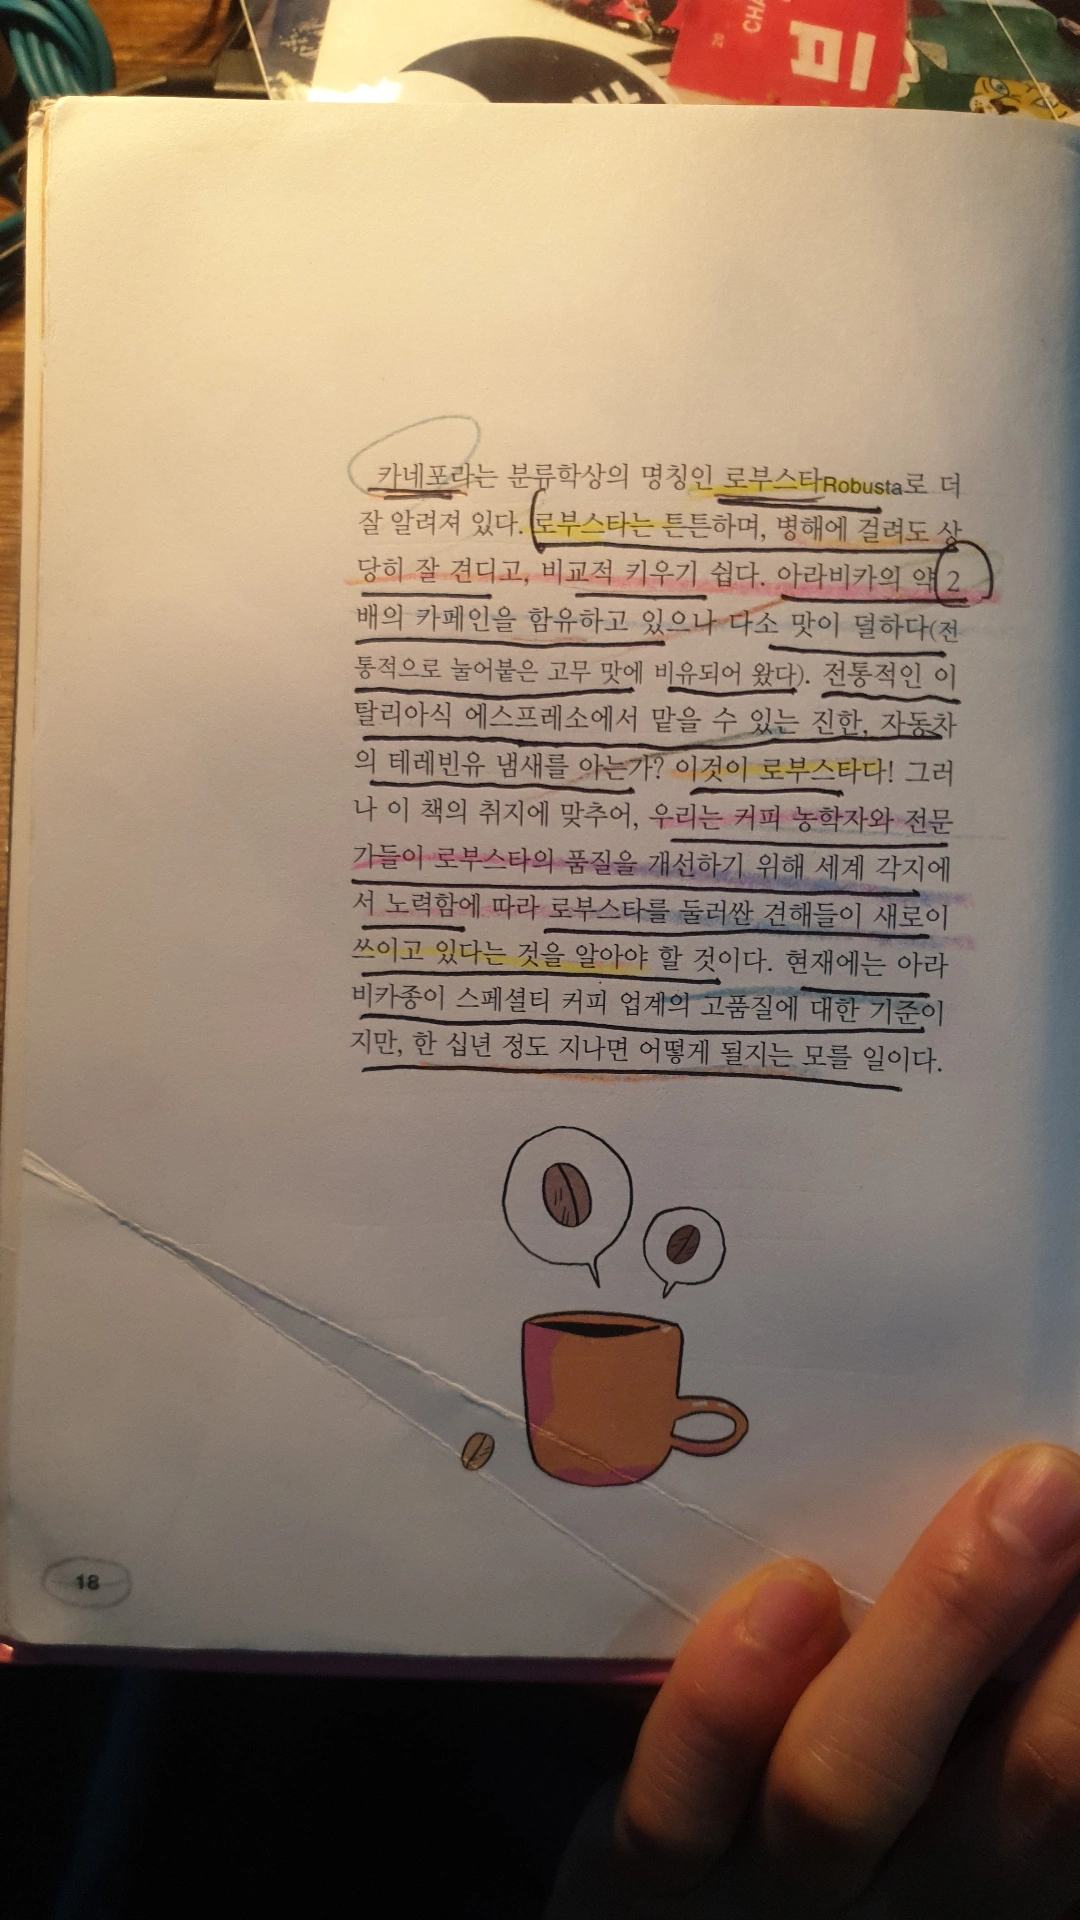 CHA
20
카네포라는 분류학상의 명칭인 로부스타Robusta로 더
잘 알려져 있다. 로부스타는 튼튼하며, 병해에 걸려도 상
당히 잘 견디고, 비교적 키우기 쉽다. 아라비카의 약 2
배의 카페인을 함유하고 있으나 다소 맛이 덜하다(전
통적으로 눌어붙은 고무 맛에 비유되어 왔다). 전통적인 이
탈리아식 에스프레소에서 맡을 수 있는 진한, 자동차
의 테레빈유 냄새를 아는가? 이것이 로부스타다! 그러
나 이 책의 취지에 맞추어, 우리는 커피 농학자와 전문
가들이 로부스타의 품질을 개선하기 위해 세계 각지에
서 노력함에 따라 로부스타를 둘러싼 견해들이 새로이
쓰이고 있다는 것을 알아야 할 것이다. 현재에는 아라
비카종이 스페셜티 커피 업계의 고품질에 대한 기준이
지만, 한 십년 정도 지나면 어떻게 될지는 모를 일이다.
18